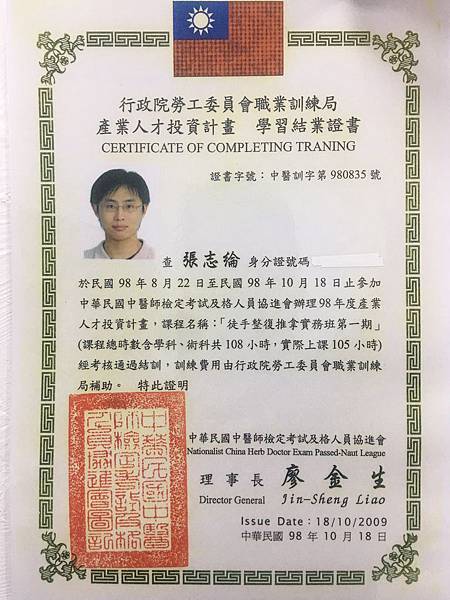 行政院勞工委員會職業訓練局
產業人才投資計畫 學習結業證書
CERTIFICATE OF COMPLETING TRANING
證書字號：中醫訓字第 980835 號
查 張志綸 身分證號碼
於民國 98 年 8 月 22 日至民國 98 年 10 月 18 日止參加
中華民國中醫師檢定考試及格人員協進會辦理 98 年度產業
人才投資計畫，課程名稱：「徒手整復推拿實務班第一期」
(課程總時數含學科、術科共 108 小時，實際上課 105 小時)
經考核通過結訓，訓練費用由行政院勞工委員會職業訓練
局補助。 特此證明
中華民國中醫師檢定考試及格人員協進會
Nationalist China Herb Doctor Exam Passed-Naut League
理事長 廖金生
Director General Jin-Sheng Liao
Issue Date：18/10/2009
中華民國 98 年 10 月 18 日